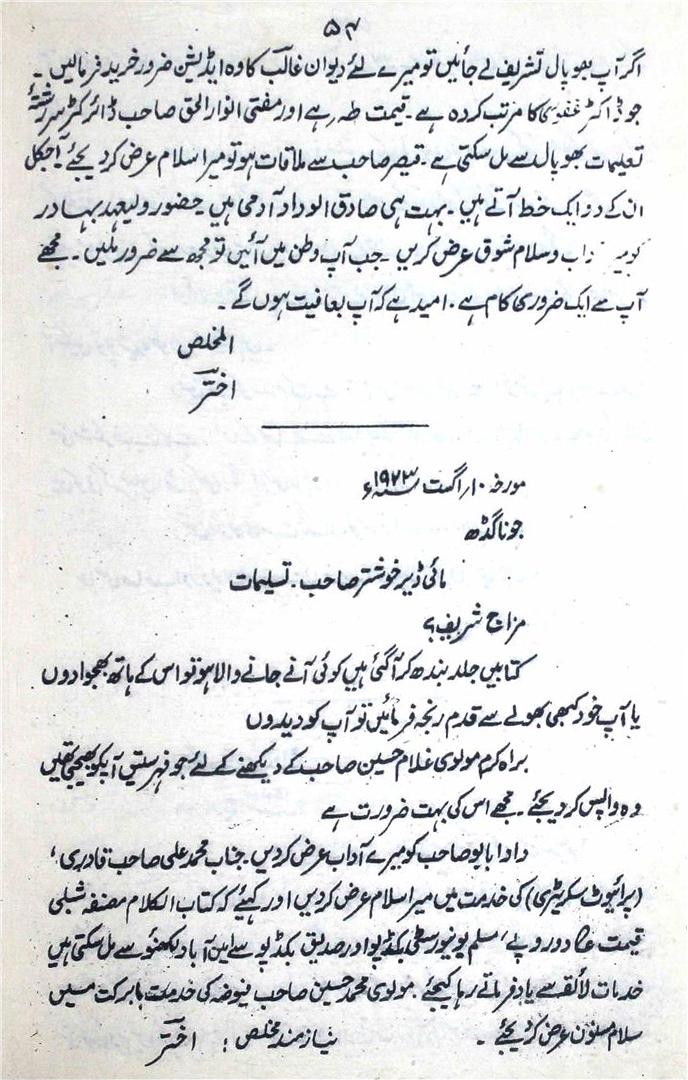 ۵۴
اگر آپ بھوپال تشریف لے جائیں تو میرے لئے دیوان غالب کا وہ ایڈیشن ضرور خرید فرمالیں۔
جو ڈاکٹر کا مرتب کردہ ہے۔ قیمت ہے اور مفتی انوار الحق صاحب ڈائرکٹر سررشتۂ
تعلیمات بھوپال سے مل سکتی ہے۔ قیصر صاحب سے ملاقات ہو تو میرا سلام عرض کر دیجئے آجکل
ان کے دو ایک خط آتے ہیں۔ بہت ہی صادق الوداد آدمی ہیں حضور ولیعہد بہادر
کو میر داب و سلام شوق عرض کریں۔ جب آپ وطن میں آئیں تو مجھ سے ضرور ملیں۔ مجھے
آپ سے ایک ضروری کام ہے۔ امید ہے کہ آپ بعافیت ہوں گے۔
المخلص
اختر
مورخہ ۱۰؍ اگست ۱۹۲۳ء
جوناگڈھ
مائی ڈیر خوشتر صاحب۔ تسلیمات
مزاج شریف؟
کتابیں جلد بندھ کر آگئی ہیں کوئی آنے جانے والا ہو تو اس کے ہاتھ بھجوا دوں
یا آپ خود کبھی بھولے سے قدم رنجہ فرمائیں تو آپ کو دیدوں
براہ کرم مولوی غلام حسین صاحب کے دیکھنے کے لئے جو فہرستیں آپکو بھیجی تھیں
وہ واپس کر دیجئے۔ مجھے اس کی بہت ضرورت ہے
دادا بابو صاحب کو میرے آداب عرض کر دیں۔ جناب محمد علی صاحب قادری،
(پرائیوٹ سکریٹری) کی خدمت میں میرا سلام عرض کر دیں اور کہیئے کہ کتاب الکلام مصنفہ شبلی
قیمت دو روپے، مسلم یونیورسٹی بکڈپو اور صدیق بکڈپو سے امین آباد لکھنؤ سے مل سکتی ہیں
خدمات لائقہ سے یاد فرماتے رہا کیجئے۔ مولوی محمد حسین صاحب فیوضہ کی خدمت بابرکت میں
سلام مسنون عرض کر دیجئے۔ نیازمند مخلص : اختر